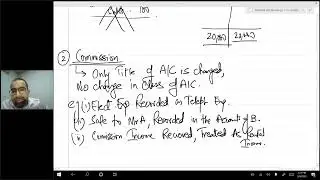 100
20,000 | 22,000
② Commission
↳ Only Title of A/C is changed,
No change in Class of A/C.
(i) Elect Exp Recorded as Teleph Exp.
(ii) Sale to Mr A, Recorded in the Account of B.
Commission Income Received, Treated As
Income.